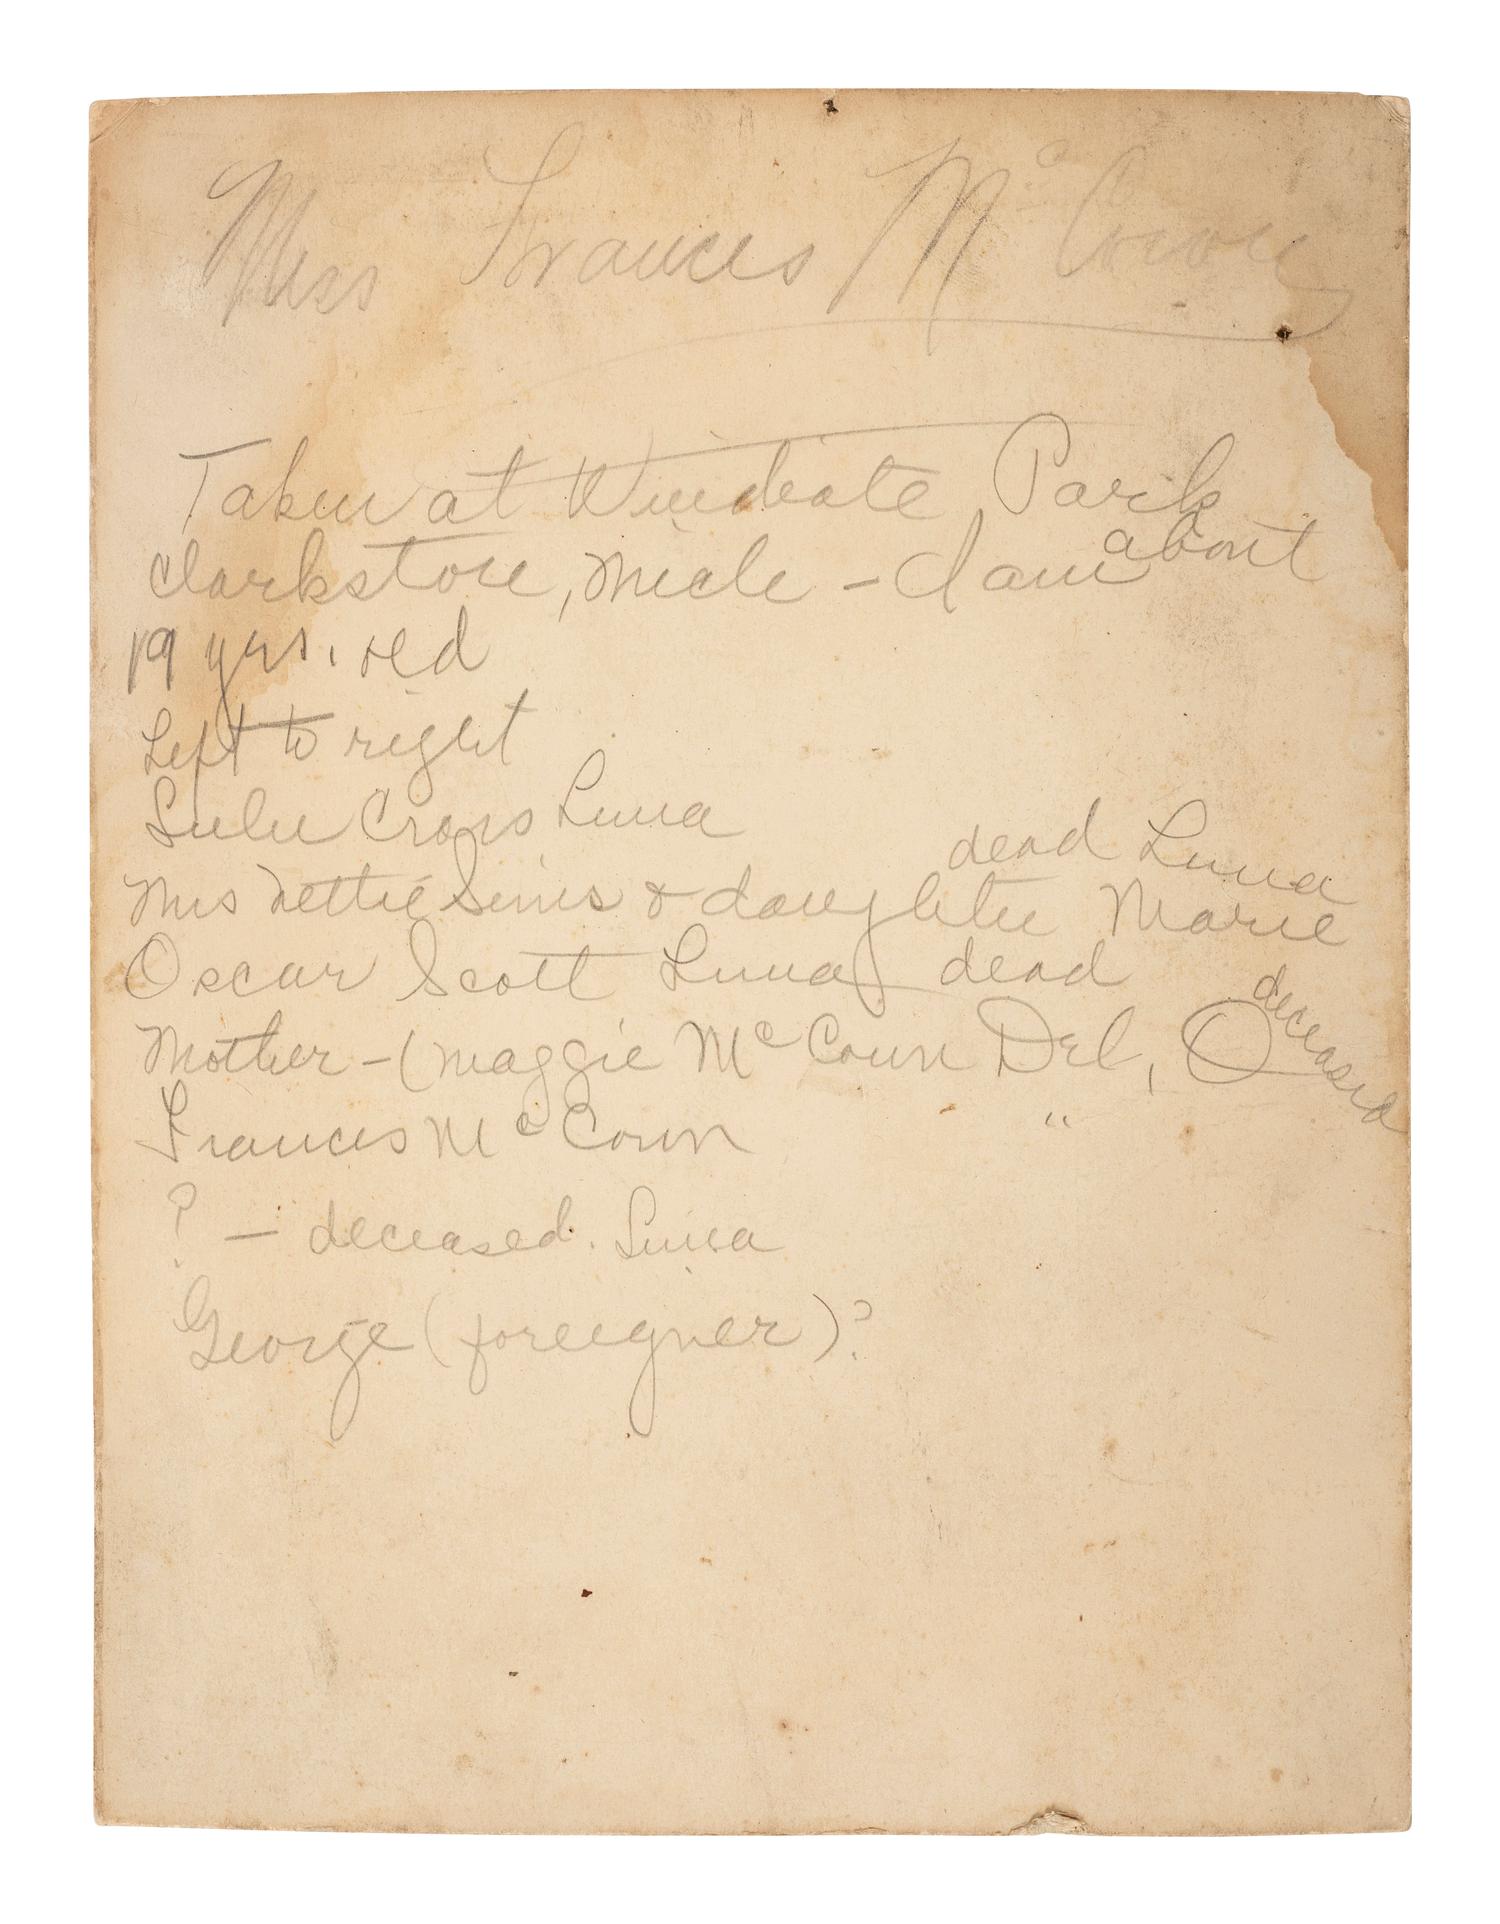 Miss Frances McCown
Taken at Windiate Park
Clarkston, Mich - I am about
19 yrs. old
Left to right
Lulu Cross Luna
dead Luna
Mrs Nettie Sims & daughter Marie
Oscar Scott Luna dead
deceased
Mother - (Maggie McCown Del, O
Frances McCown "
? - deceased. Luna
George (foreigner)?